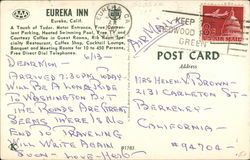 EUREKA INN
Eureka, Calif.
A Touch of Tudor. Motor Entrance, Free Convenient Parking, Heated Swimming Pool, Free TV and
Courtesy Coffee in Guest Rooms, Rib Room Specialty Restaurant, Coffee Shop, Cocktail Lounge,
Banquet and Meeting Rooms for 10 to 400 Persons.
Free Direct Dial Telephones.
AAA
KEEP
REDWOOD
GREEN
POST CARD
Address
6/13-
DEAR MOM
ARRIVED 7:30 PM TODAY
WILL BE A LONG RIDE
TO WASHINGTON
THE ROADS ARE GREAT
SEEMS THERE IS NO
END TO TRAVELING
WILL WRITE AGAIN
SOON - LOVE - HERB
MRS HELEN V BROWN
2131 CARLETON ST
BERKELEY
CALIFORNIA
94704
91783